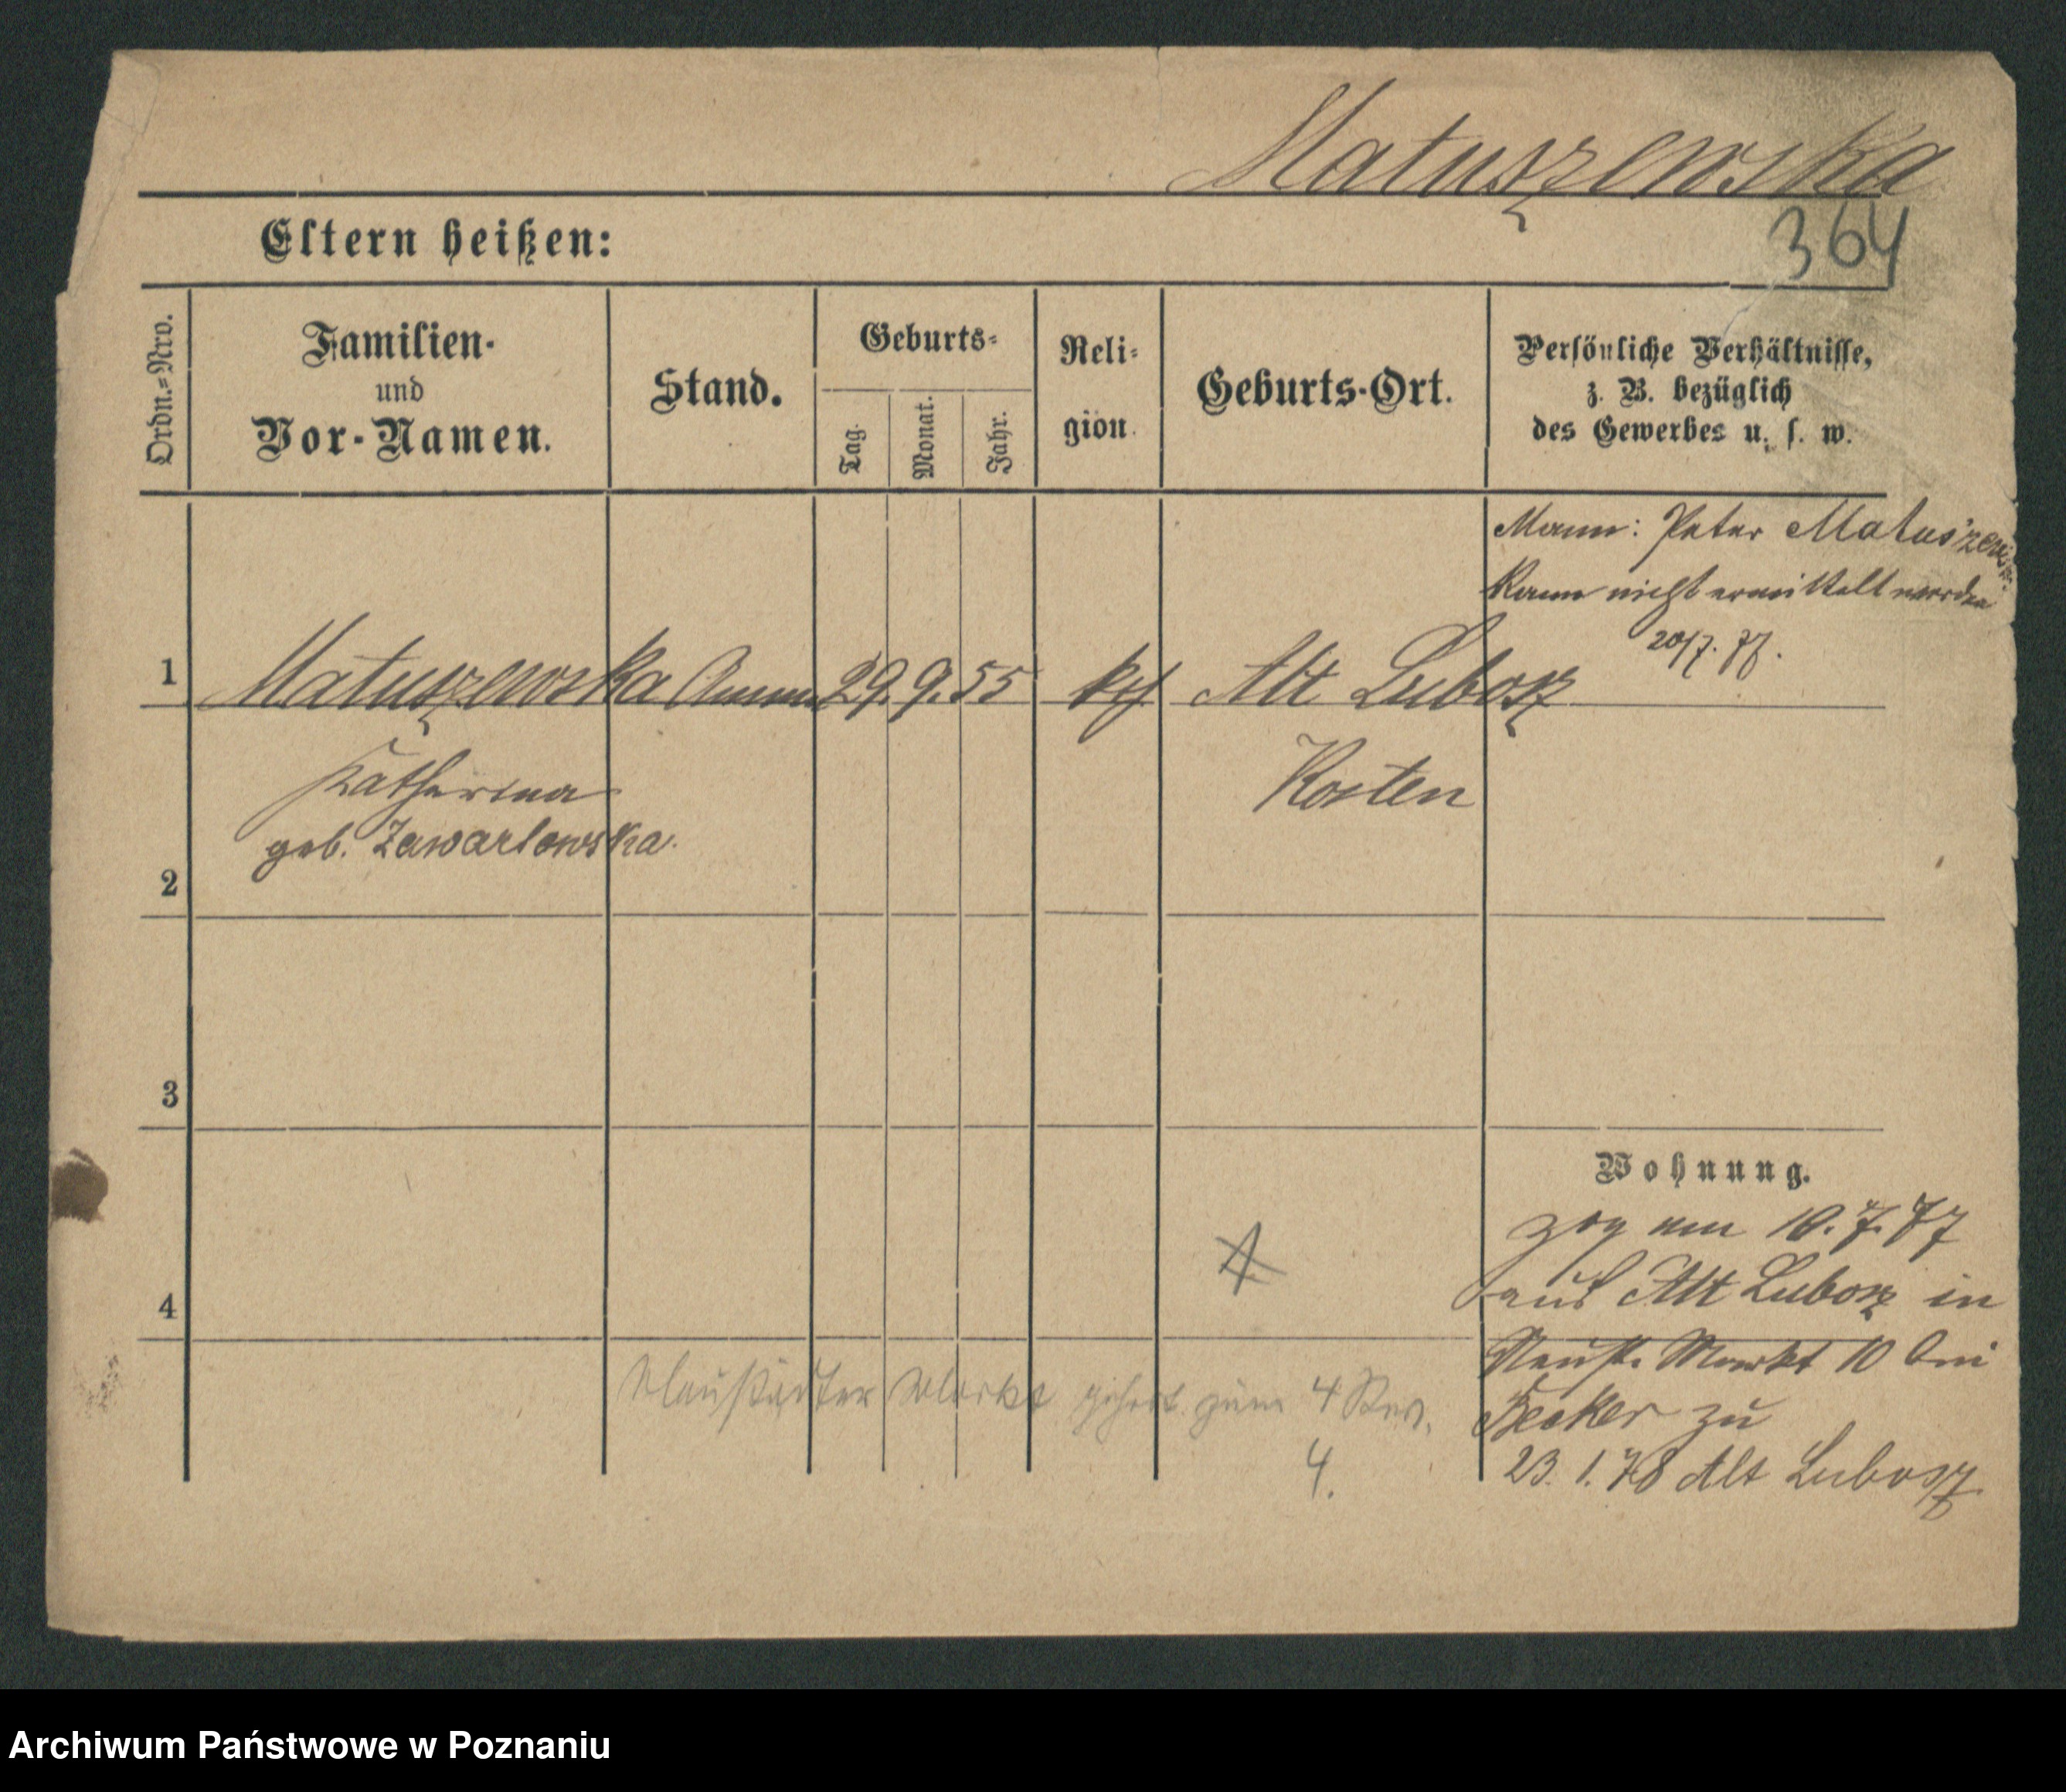 Matuszewska
364
Eltern heißen:
Ordn.-Nro.
Familien-
und
Vor-Namen.
Stand.
Geburts-
Tag.
Monat.
Jahr.
Reli-
gion.
Geburts-Ort.
Persönliche Verhältnisse,
z. B. bezüglich
des Gewerbes u. s. w.
Mann: Peter Matuszewski
Kann nicht ermittelt werden
20/7. 77.
1 Matuszewska Amme 29. 9. 55 kth Alt Lubosz
Katharina
Kosten
geb. Zawartowska.
2
3
Wohnung.
zog am 10. 7. 77
aus Alt Lubosz in
4
Neust. Markt 10 bei
Neustädter Markt gehört zum 4 Rev.
Becker zu
4.
23. 1. 78 Alt Lubosz
Archiwum Państwowe w Poznaniu